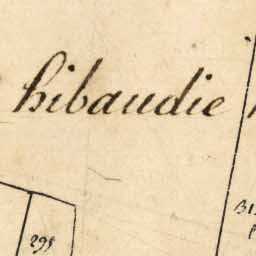 hibaudie
295